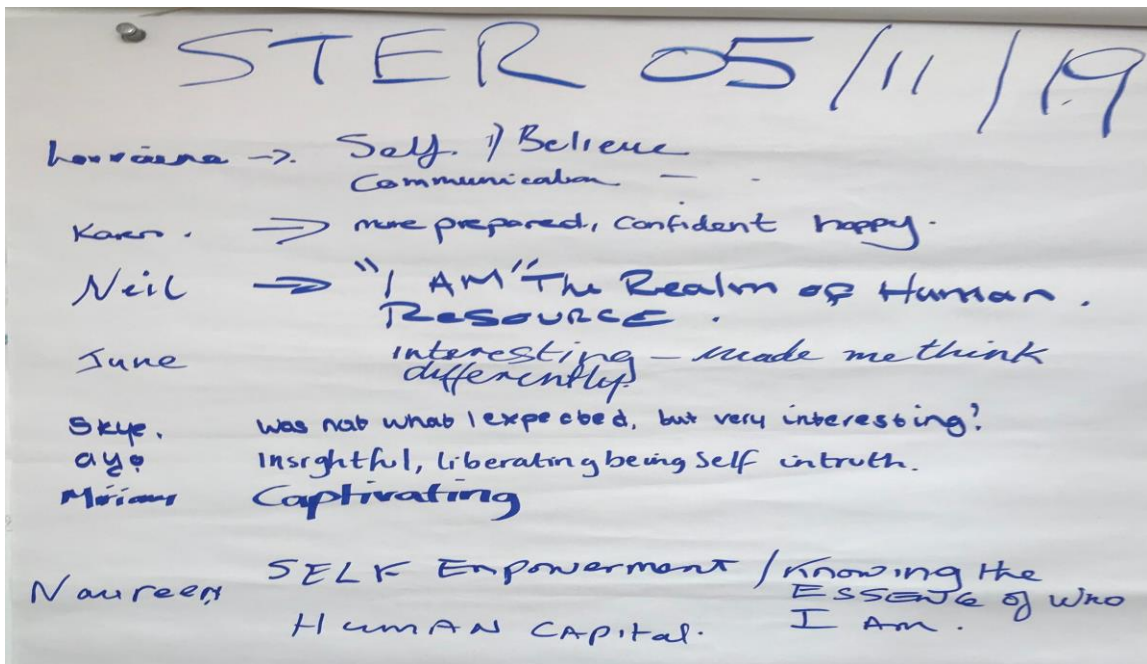 STER 05/11/19
Lorraine -> Self. 1) Believe
Communication. - -
Karen. => more prepared, confident happy.
Neil => "I AM" The Realm of Human.
RESOURCE.
June interesting - made me think
differently.
Skye. was not what I expected, but very interesting!
ayo Insightful, liberating being Self in truth.
Miriam Captivating
Naureen SELF Empowerment / Knowing the
ESSENCE of WHO
HUMAN CAPITAL. I Am.